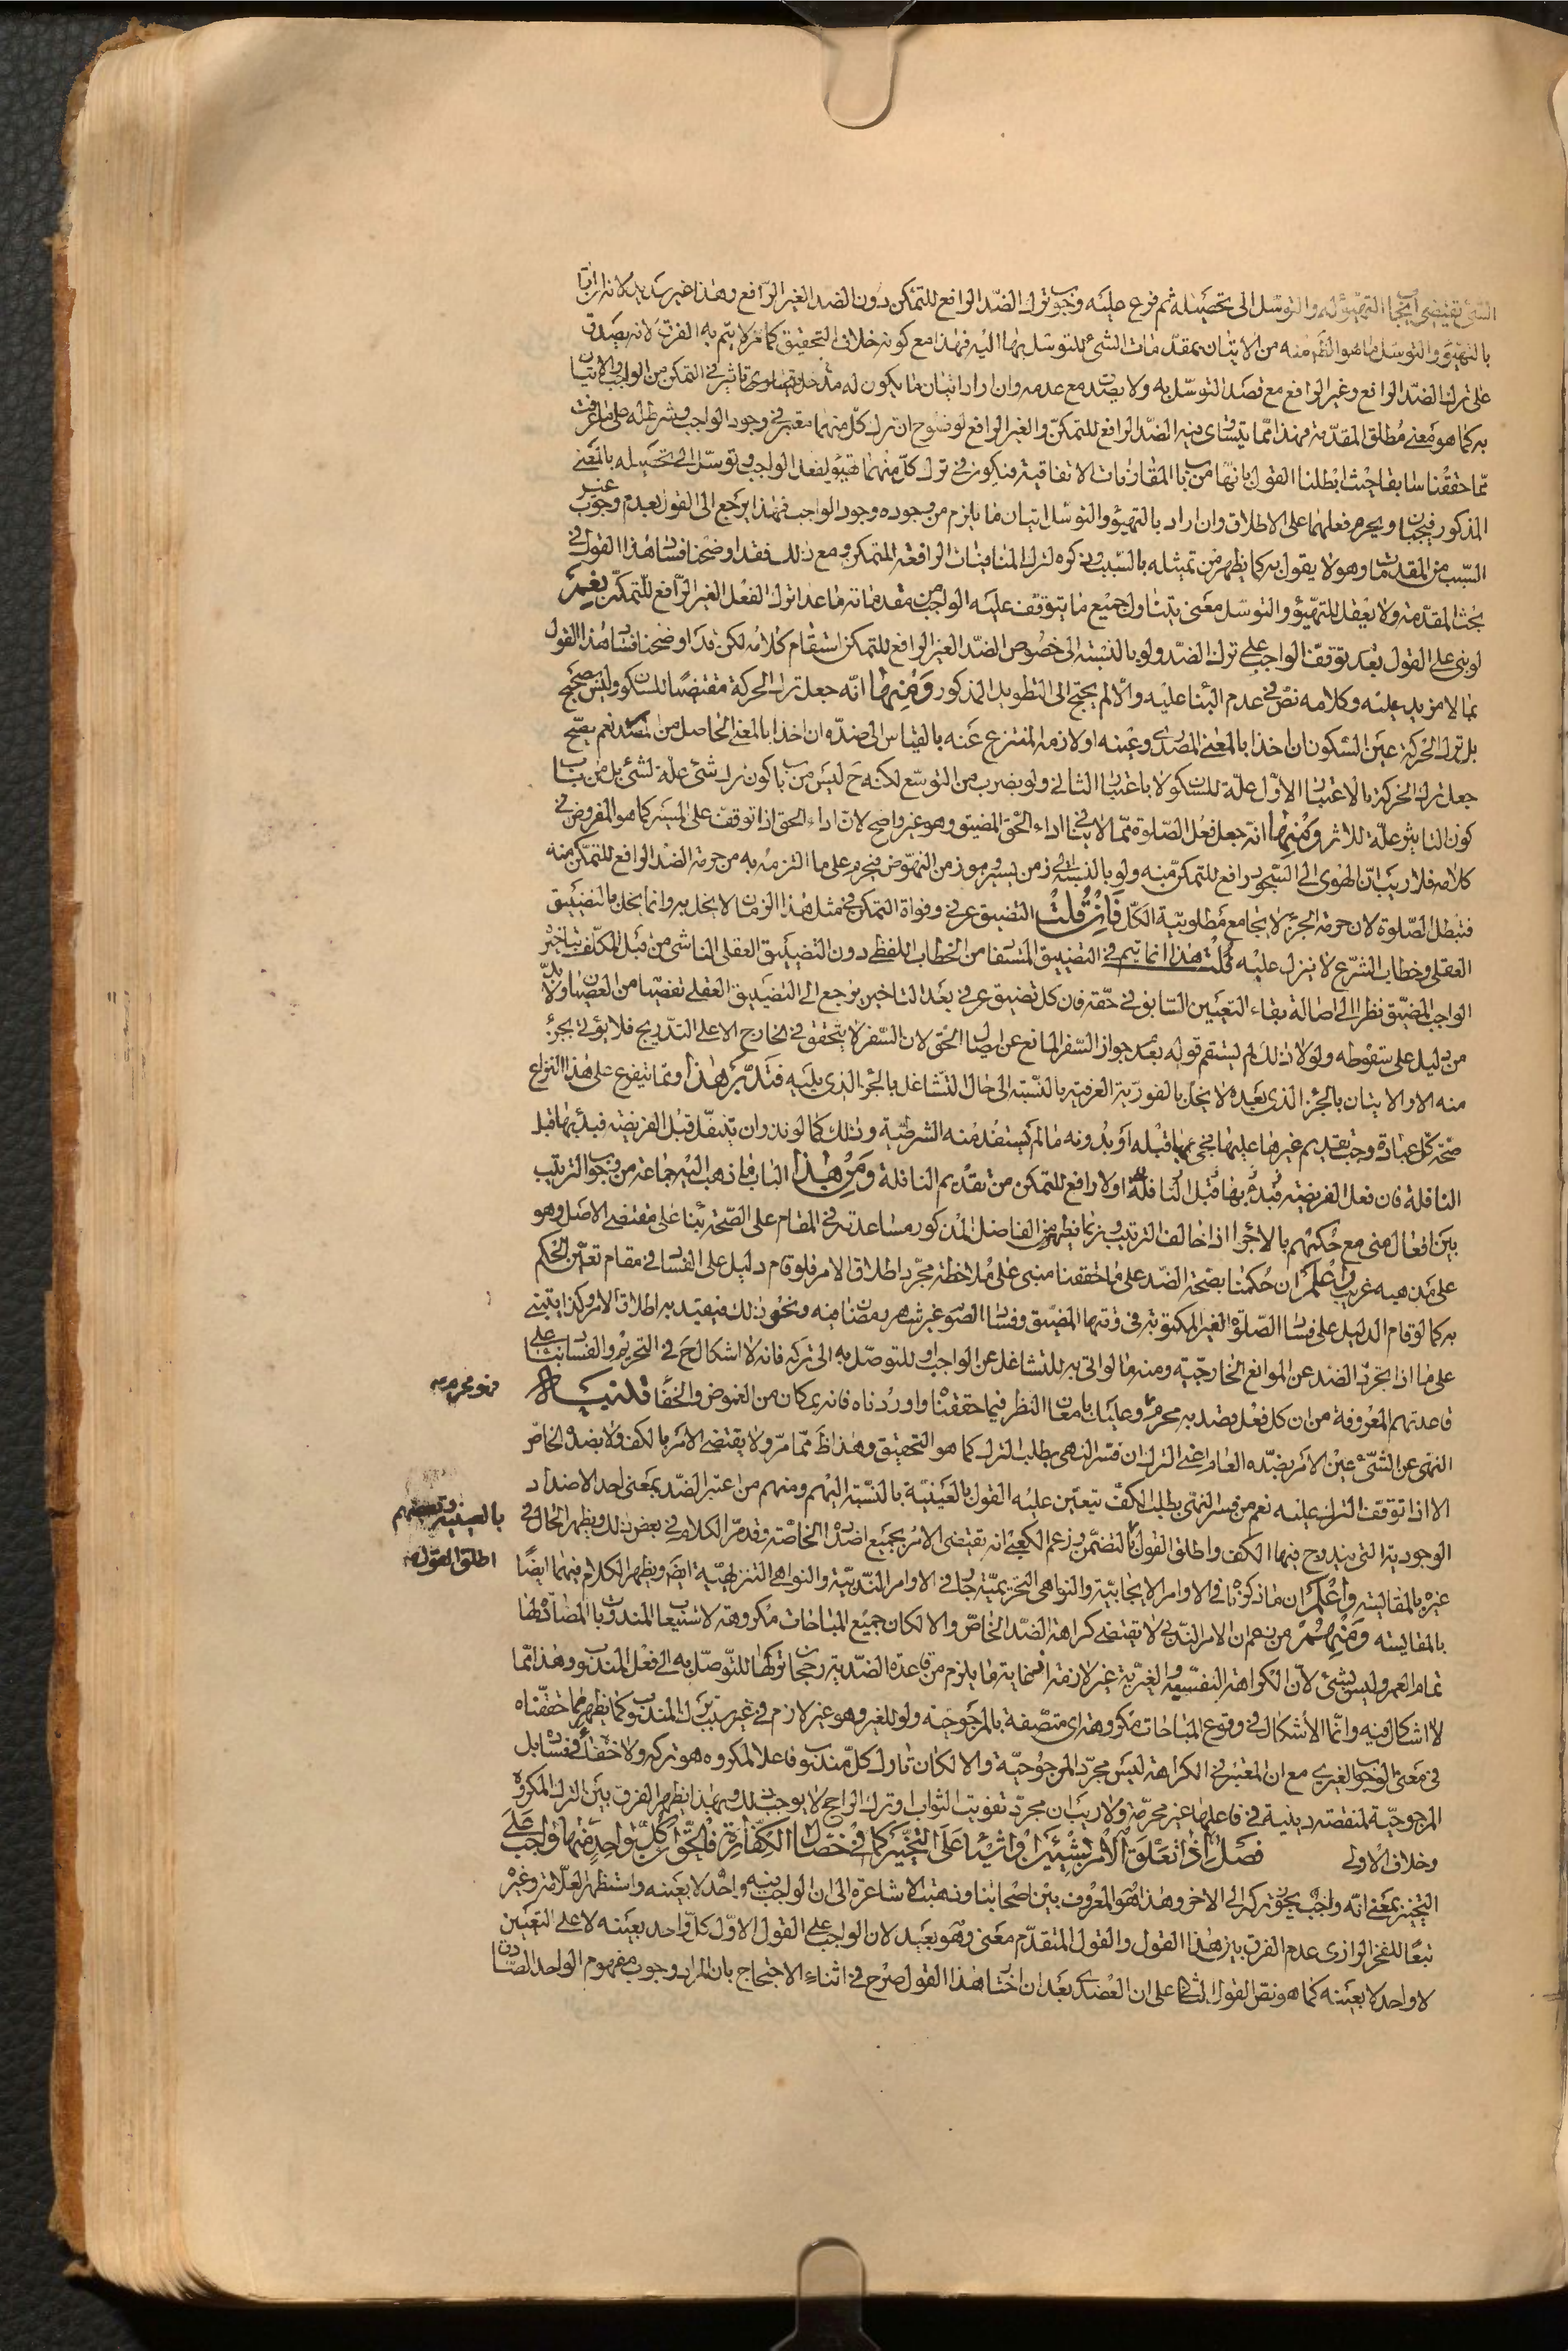 الشيء يقتضي ايجاب التهيؤ له والتوسل الى تحصيله ثم فرع عليه وجوب ترك الضد الرافع للتمكن دون الضد الغير الرافع وهذا غير سديد لانه ان اراد
بالتهيؤ والتوسل ما هو الظاهر منه من الاتيان بمقدمات الشيء للتوسل بها اليه فهذا مع كونه خلاف التحقيق كما مر لا يتم به الفرق لانه يصدق
على ترك الضد الرافع وغير الرافع مع قصد التوسل به ولا يصدق مع عدمه وان اراد اتيان ما يكون له مدخل وتأثير في التمكن من الواجب والاتيان
به كما هو معنى مطلق المقدمة فهذا مما يتساوى فيه الضد الرافع للتمكن والغير الرافع لوضوح ان ترك كل منهما معتبر في وجود الواجب وشرط له على ما عرفت
مما حققنا سابقا حيث ابطلنا القول بانها من باب المقارنات الاتفاقية فيكون في ترك كل منهما تهيؤ لفعل الواجب وتوسل الى تحصيله بالمعنى
المذكور فيجبان ويحرم فعلهما على الاطلاق وان اراد بالتهيؤ والتوسل اتيان ما يلزم من وجوده وجود الواجب فهذا يرجع الى القول بعدم وجوب غير
السبب من المقدمات وهو لا يقول به كما يظهر من تمثيله بالسبب وذكره لترك المنافيات الرافعة للتمكن ومع ذلك فقد اوضحنا فساد هذا القول في
بحث المقدمة ولا يعقل للتهيؤ والتوسل معنى يتناول جميع ما يتوقف عليه الواجب من مقدماته ما عدا ترك الفعل الغير الرافع للتمكن نعم
لو بنى على القول بعدم توقف الواجب على ترك الضد ولو بالنسبة الى خصوص الضد الغير الرافع للتمكن استقام كلامه لكن قد اوضحنا فساد هذا القول
بما لا مزيد عليه وكلامه نص في عدم البناء عليه والا لم يحتج الى التطويل المذكور ومنها انه جعل ترك الحركة مقتضيا للسكون وليس صحيح
بل ترك الحركة عين السكون ان اخذ بالمعنى المصدري وعينه او لازمه المنتزع عنه بالقياس الى ضده ان اخذا بالمعنى الحاصل من المصدر نعم يصح
جعل ترك الحركة بالاعتبار الاول علة للسكون لا باعتبار الثاني ولو بضرب من التوسع لكنه ح ليس من باب كون ترك شيء علة لشيء بل من باب
كون التأثير علة للاثر ومنها انه جعل فعل الصلوة مما لا ينافي اداء الحق المضيق وهو غير واضح لان اداء الحق اذا توقف على المسير كما هو المفروض في
كلامه فلا ريب ان الهوى الى السجود رافع للتمكن منه ولو بالنسبة الى زمن يسير هو زمن النهوض فيحرم على ما التزم به من حرمة الضد الرافع للتمكن منه
فتبطل الصلوة لان حرمة الجزء لا يجامع مطلوبية الكل فان قلت التضيق عرفي وفوات التمكن في مثل هذا الزمان لا يخل به وانما يخل بالتضييق
العقلي وخطاب الشرع لا ينزل عليه قلت هذا انما يتم في التضييق المستفاد من الخطاب اللفظي دون التضييق العقلي الناشي من قبل المكلف بتأخير
الواجب المضيق نظرا الى اصالة بقاء التعيين السابق في حقه فان كل تضيق عرفي بعد التاخير يرجع الى التضييق العقلي تفصيا من العصيان ولا بد
من دليل على سقوطه ولو لا ذلك لم يستقم قوله بعدم جواز السفر المانع عن ايصال الحق لان السفر لا يتحقق في الخارج الا على التدريج فلا يؤتى بجزء
منه الا والاتيان بالجزء الذي بعده لا يخل بالفورية العرفية بالنسبة الى حال التشاغل بالجزء الذي يليه فتدبر هذا ومما يتفرع على هذا النزاع
صحة كل عبادة وجب تقديم غيرها عليها فيجيء بها قبله او بدونه ما لم يستفد منه الشرطية وذلك كما لو نذر ان يتنفل قبل الفريضة فبدأ بها قبل
النافلة فان فعل الفريضة قبل النافلة اولا رافع للتمكن من تقديم النافلة ومن هذا الباب ما ذهب اليه جماعة من وجوب الترتيب
بين افعال منى مع حكمهم بالاجزاء اذا خالف الترتيب وربما يظهر من الفاضل المذكور مساعدته في المقام على الصحة بناء على مقتضى الاصل وهو
على مذهبه غريب واعلم ان حكمنا بصحة الضد على ما حققنا مبني على ملاحظة مجرد اطلاق الامر فلو قام دليل على الفساد في مقام تعين الحكم
به كما لو قام الدليل على فساد الصلوة الغير المكتوبة في وقتها المضيق وفساد الصوم غير شهر رمضان فيه ونحو ذلك فيقيد به اطلاق الامر وكذا يبتني
على ما اذا تجرد الضد عن الموانع الخارجية ومنه ما لو اتى به للتشاغل عن الواجب او للتوصل به الى تركه فانه لا اشكال ح في التحريم والفساد بناء على
قاعدتهم المعروفة من ان كل فعل قصد به محرم وعليك بامعان النظر فيما حققنا واوردناه فانه بمكان من الغموض والخفاء تذنيبات
فهو محرم صح
النهي عن الشيء عين الامر بضده العام اعني الترك ان فسر النهي بطلب الترك كما هو التحقيق وهذا ظ مما مر ولا يقتضي الامر بالكف ولا بضده الخاص
الا اذا توقف الترك عليه نعم من فسر النهي بطلب الكف يتعين عليه القول بالعينية بالنسبة اليهم ومنهم من اعتبر الضد بمعنى احد الاضداد
الوجودية التي يندرج فيها الكف واطلق القول بالتضمن وزعم الكعبي انه يقتضي الامر بجميع اضداده الخاصة وقد مر الكلام في بعض ذلك ويظهر الحال في
بالعينية وبعضهم
اطلق القول صح
غيره بالمقايسة واعلم ان ما ذكرناه في الاوامر الايجابية والنواهي التحريمية جار في الاوامر الندبية والنواهي التنزيهية ايضا ويظهر الكلام فيهما ايضا
بالمقايسة ومنهم من زعم ان الامر الندبي لا يقتضي كراهة الضد الخاص والا لكان جميع المباحات مكروهة لاستيعاب المندوب بالمضادة لها
تمام العمر وليس بشيء لان الكراهة النفسية والغيرية غير لازمة اذ غاية ما يلزم من قاعدة الضدية رجحان تركها للتوصل به الى فعل المندوب وهذا مما
لا اشكال فيه وانما الاشكال في وقوع المباحات مكروهة اي متصفة بالمرجوحية ولو للغير وهو غير لازم في غير سبب ترك المندوب كما يظهر مما حققناه
في معنى الوجوب الغيري مع ان المعتبر في الكراهة ليس مجرد المرجوحية والا لكان تارك كل مندوب فاعلا لمكروه هو تركه ولا خفاء في فساده بل
المرجوحية لمنقصة دينية في فاعلها غير محرمة ولا ريب ان مجرد تفويت الثواب وترك الراجح لا يوجب ذلك وبهذا يظهر الفرق بين الترك المكروه
وخلاف الاولى فصل اذا تعلق الامر بشيئين او اشياء على التخيير كما في خصال الكفارة فالحق ان كل واحد منها واجب على
التخيير بمعنى انه واجب يجوز تركه الى الاخر وهذا هو المعروف بين اصحابنا وذهبت الاشاعرة الى ان الواجب منه واحد لا بعينه واستظهر العلامة وغيره
تبعا للفخر الرازي عدم الفرق بين هذا القول والقول المتقدم معنى وهو بعيد لان الواجب على القول الاول كل واحد بعينه لا على التعيين
لا واحد لا بعينه كما هو نص القول الثاني على ان العضدي بعد ان اختار هذا القول صرح في اثناء الاحتجاج بان المراد وجوب مفهوم الواحد الصادق